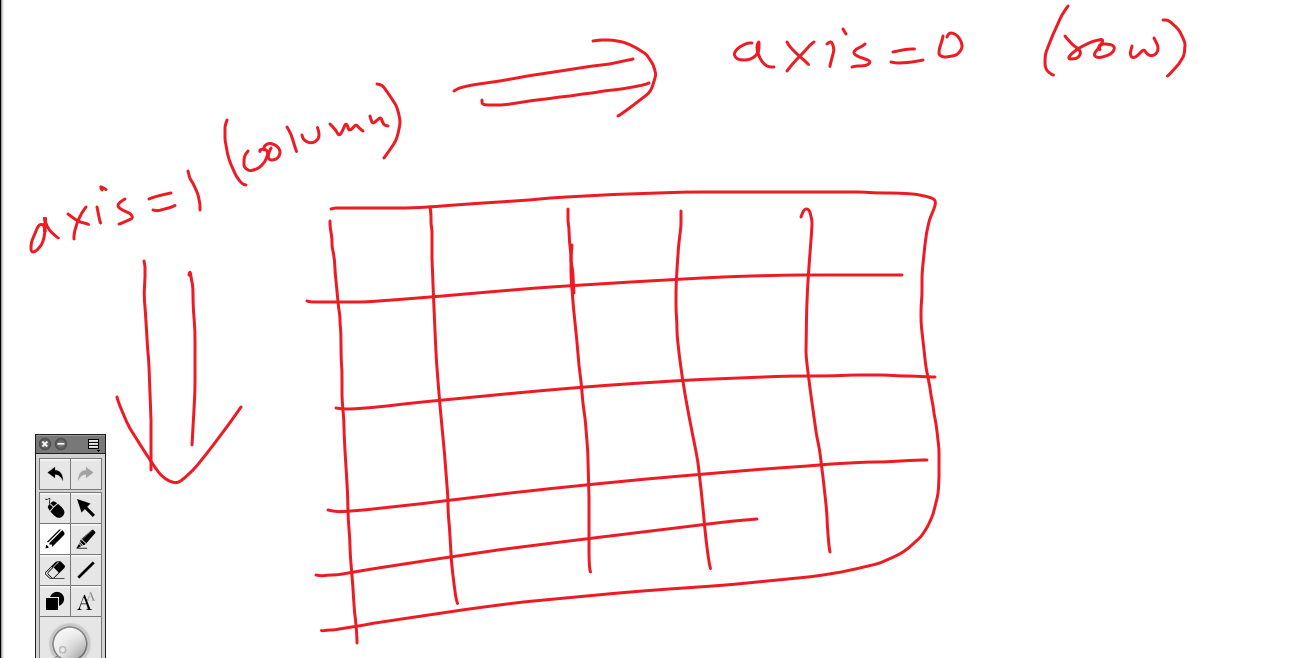 axis=0 (row)
axis=1 (column)
A